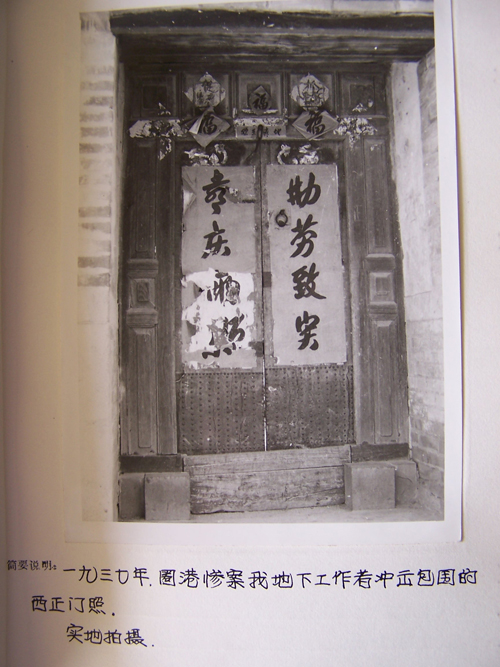 福
福
福
勤劳致富
简要说明:一九三七年.圈港惨案我地下工作者冲出包围的
西正门照.
实地拍摄.